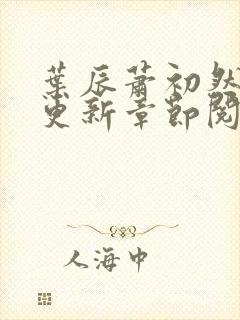 葉辰蕭初然
更新章節閱
人海中